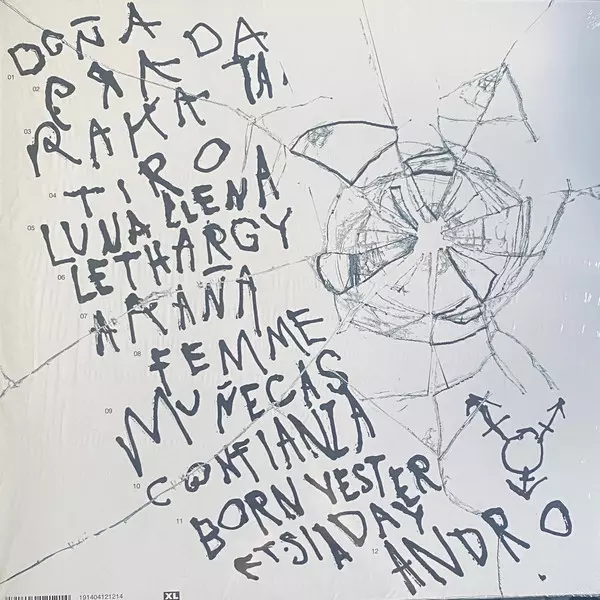 01 DOÑA
02 PRADA
03 RAKATA.
04 TIRO
05 LUNA LLENA
06 LETHARGY
07 ARAÑA
08 FEMME
09 MUÑECAS
10 CONFIANZA
11 BORN YESTER
DAY
FT. SIA
12 ANDRO.
191404121214
XL